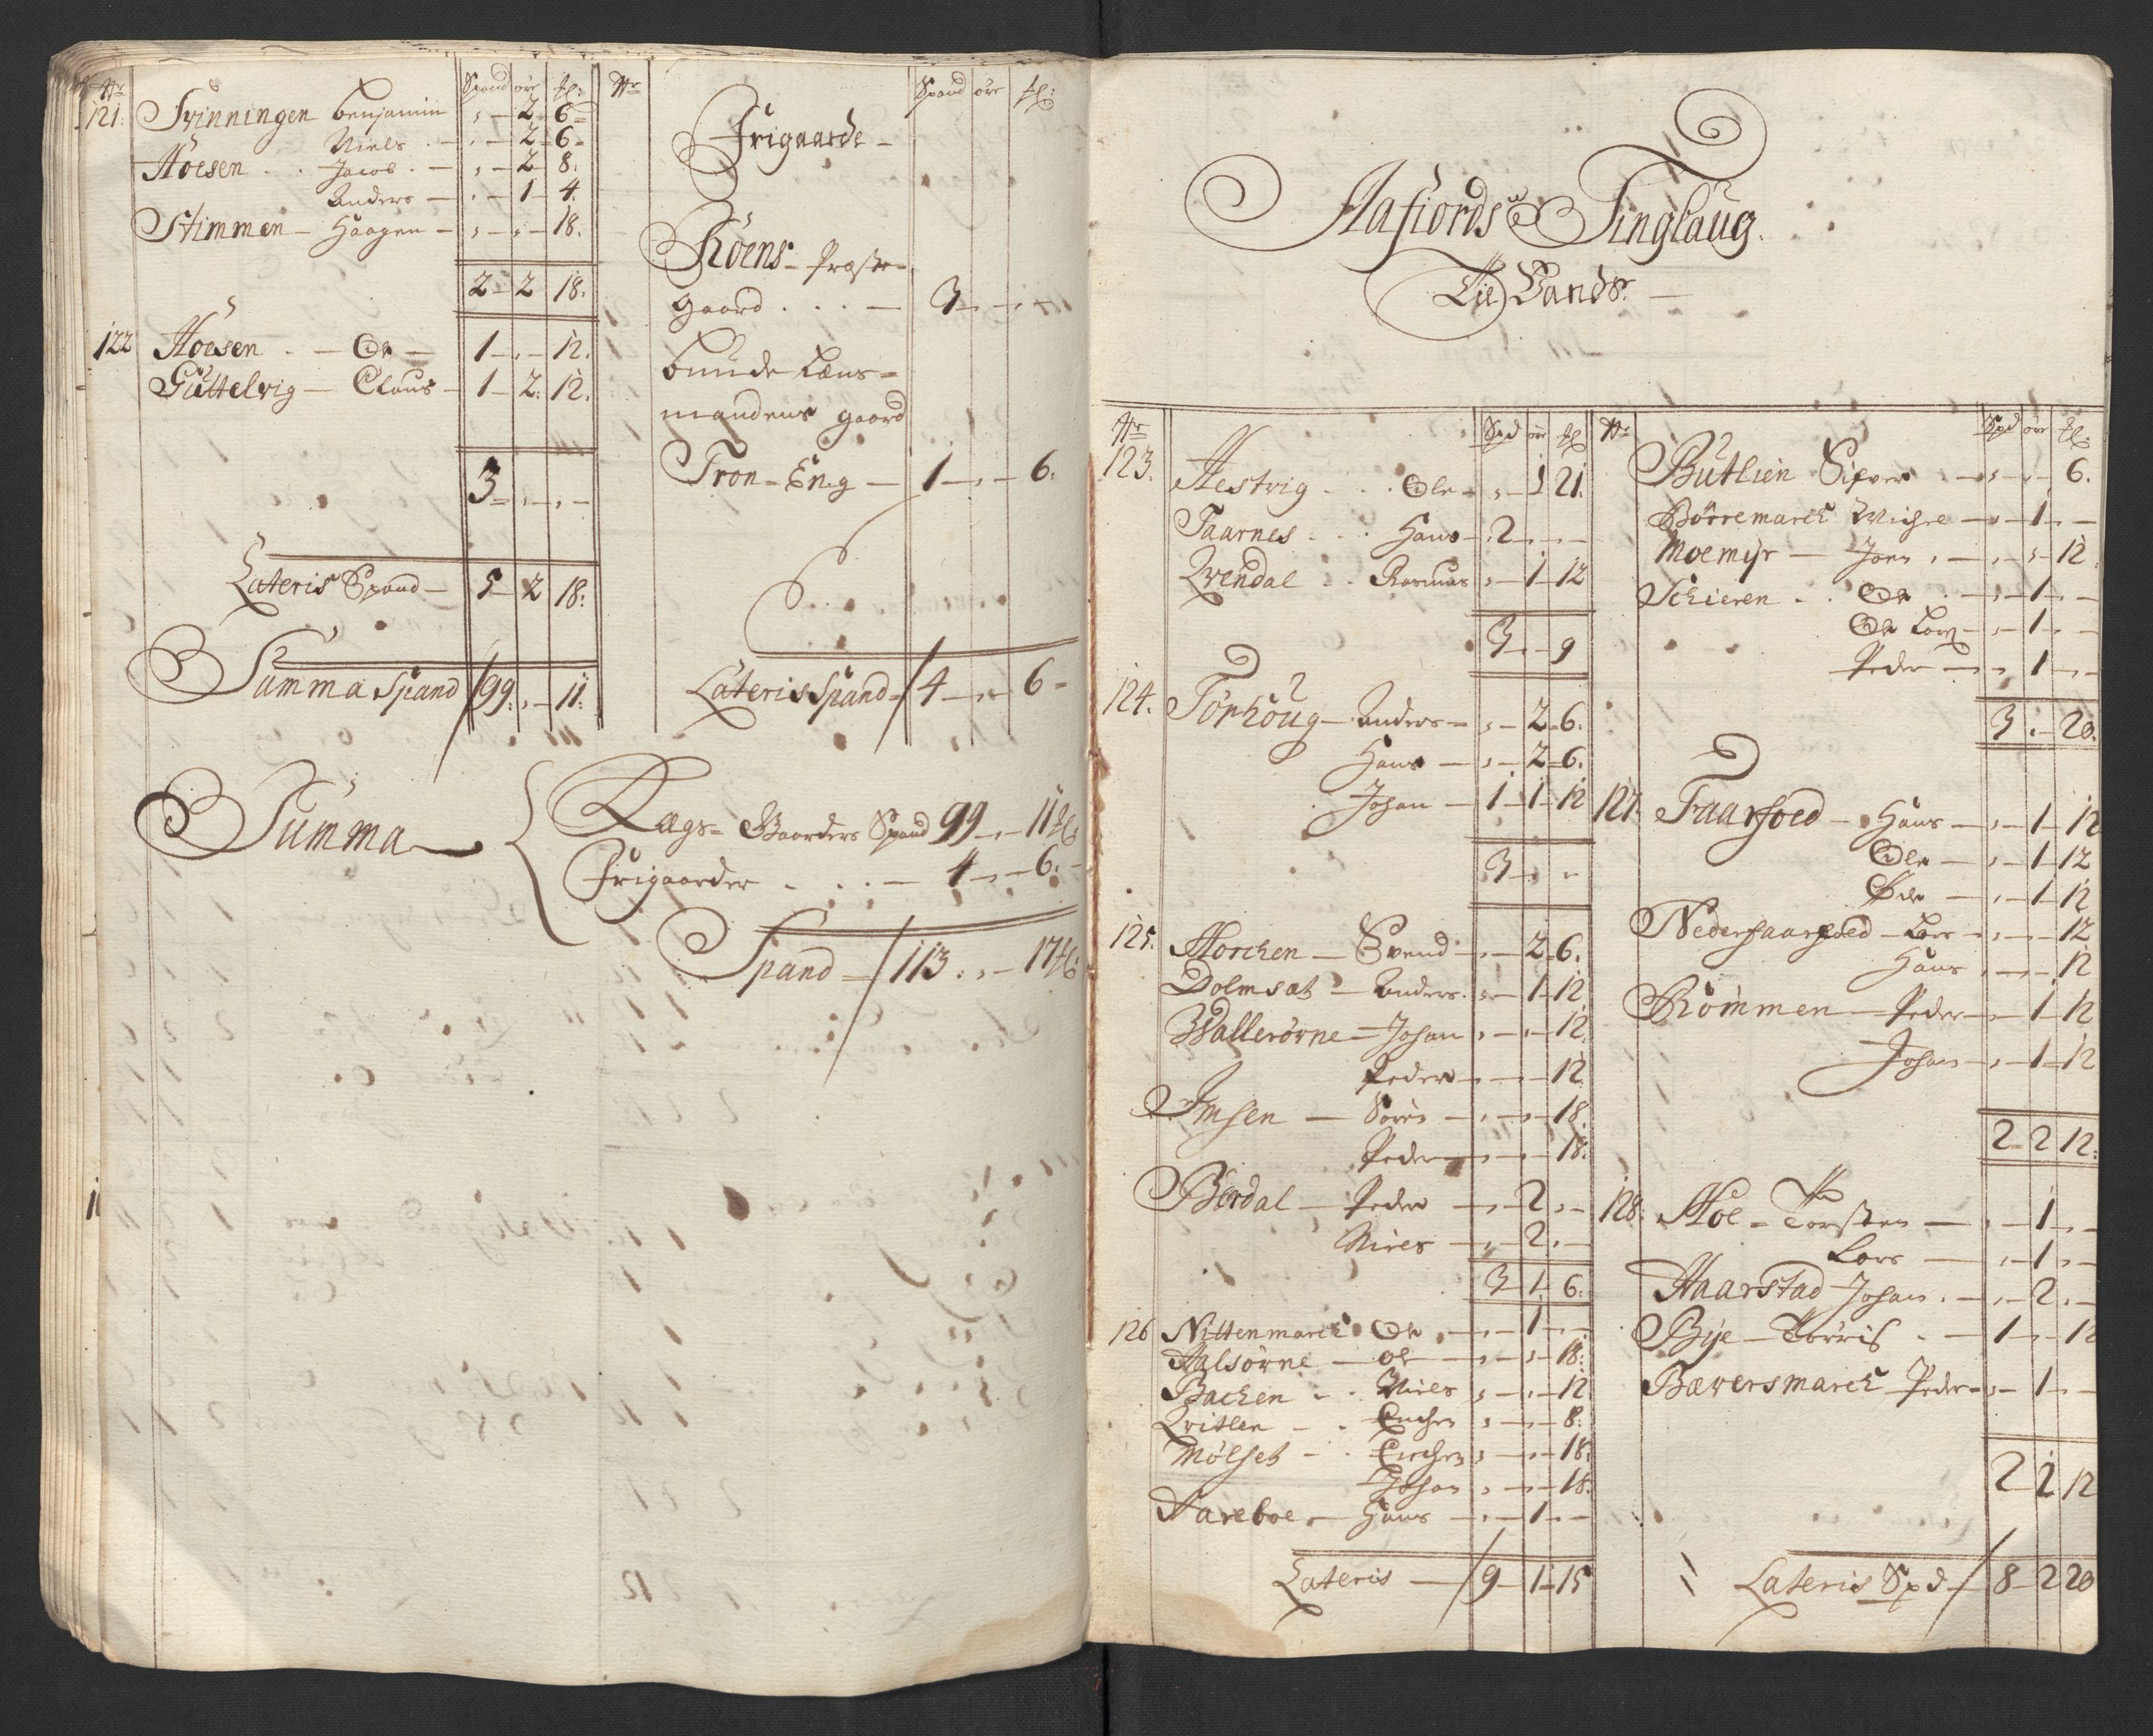 No Spand öre ℔:
121: Svinningen Benjamin , – 2 – 6 –
Niels . – , – 2 – 6 –
Hoesen . . Jacob . – , – 2 – 8.
Anders – , – 1 – 4.
Stimmen – Haagen – , – , – 18.
2 – 2 18.
122 Hoesen . – Ole – 1 – , – 12.
Güttelvig – Claus – 1 – 2. 12.
3 – , – , –
Lateris Spand – 5 – 2 18.
Summa Spand / 99: , – 11.
No Spand öre ℔:
Frigaarde –
Röens – Præste-
gaard . . . – 3 – , – , –
Bunde Lens-
mandens gaard
Tron – Eng – 1 – , – 6.
Lateris Spand – / 4 – , – 6 –
Summa
Lægs – Gaarders Spand 99 – , – 11 ℔:
Frigaarder . . . – 4 – , – 6. –
Spand – / 113 . , – 17 ℔:
Aafiords Tinglaug.
Til Lands. –
No Spd öre ℔
123. Hestvig . . . Ole – , – 1 21.
Taarnes . . . Hans – 2 – , – , –
Qvendal . . Rasmus , – 1 – 12
3 – , – 9
124. Törhöug – Anders – , – 2 – 6.
Hans – , – 2 – 6.
Johan – 1 – 1 – 12
3 – , –
125. Horchen – Svend – , – 2 – 6.
Dolmsat – Anders . , – 1 – 12.
Wallerörne – Johan , – , – 12.
Peder – , – , – 12.
Imsen – Sören – , – , – 18.
Peder – , – , – 18.
Berdal – Peder – , – 2 . , –
Niels – , – 2 . –
3 1. 6.
126 Nittenmarck Ole . – , – 1 – , –
Aalsörne – Ole – , – , – 18.
Bachen . . Niels , – , – 12
Qvitlen – . Erich , – , – 8.
Mölset – . Erich , – , – 18.
Johan , – , – 18.
Harboe . – Hans – , – 1 – , –
Lateris – / 9 – 1 – 15
No Spd öre ℔:
Butlien Sifver . – , – , – 6.
Börremarck Michel – , – 1 – , –
Moemyr – Joen . – , – , – 12
Schieren . . Ole . – , – 1 – , –
Ole Lars – , – 1 – , –
Peder – , – 1 – , –
3 . – 20.
127. Faarfoed – Hans – , – 1 – 12
Ole – , – 1 – 12
Ole – , – 1 – 12
Nederfaarfoed – Lars – , – , – 12
Hans , – , – 12
Römmen – Peder – , – 1 – 12
Johan – , – 1 – 12
2 – 2 12.
128. Hoe – Torsten – , – 1 – , –
Lars – , – 1 – , –
Haarstad Johan . – , – 2 . , –
Bye – Törris . – 1 – , – 12
Bæversmarck Peder – , – 1 – , –
2 2 12
Lateris Spd – / 8 – 2 20